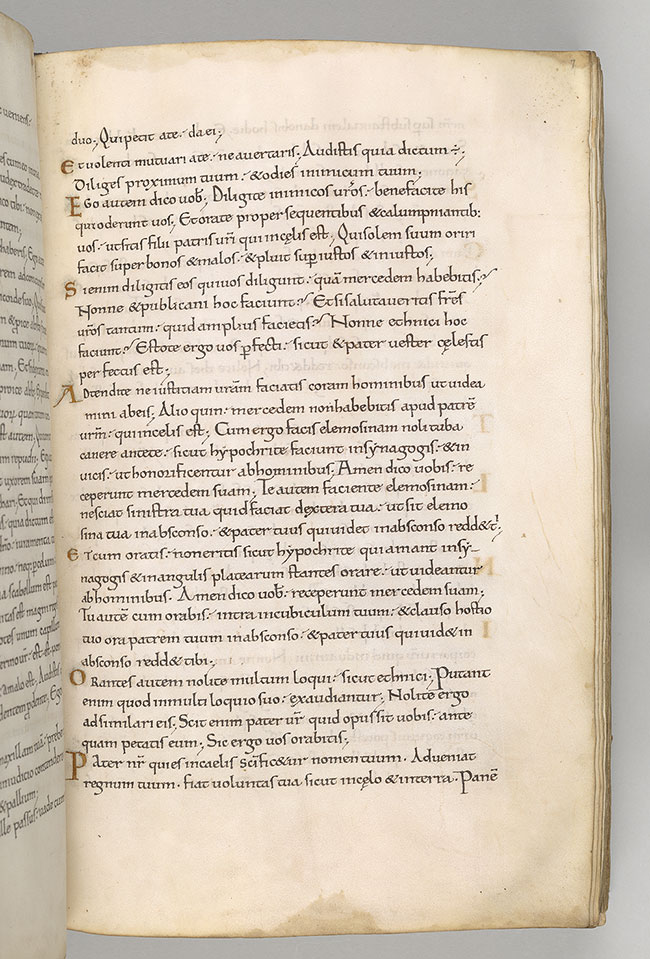 duo; Qui petit a te · da ei;
Et volenti mutuari a te · ne avertaris; Audistis quia dictum ÷;
Diliges proximum tuum · & odies inimicum tuum;
Ego autem dico uob̅; Diligite inimicos ur̅os · benefacite his
qui oderunt uos; Et orate pro persequentibus & calumpniantib:
uos · ut sitis filii patris ur̅i qui in cęlis est; Qui solem suum oriri
facit super bonos & malos · & pluit sup̲ iustos & iniustos;
Si enim diligitis eos qui uos diligunt · quā mercedem habebitis;
Nonne & publicani hoc faciunt? Et si salutaueritis fr̅es
ur̅os tantum · quid amplius facietis? Nonne ethnici hoc
faciunt? Estote ergo uos p̲fecti · sicut & pater uester cęlestis
perfectus est;
Adtendite ne iustitiam urām faciatis coram hominibus ut uidea
mini ab eis; Alioquin · mercedem non habebitis apud patrē
ur̅m · qui in celis est; Cum ergo facis elemosinam noli tuba
canere ante te · sicut hypochrite faciunt in synagogis · & in
uicis · ut honorificentur ab hominibus; Amen dico uobis · re
ceperunt mercedem suam; Te autem faciente elemosinam ·
nesciat sinistra tua quid faciat dextera tua · ut sit elemo
sina tua in absconso · & pater tuus qui uidet in absconso redd& t̅;
Et cum oratis · non eritis sicut hypochrite qui amant in sy-
nagogis & in angulis platearum stantes orare · ut uideantur
ab hominibus. Amen dico uob̅ · receperunt mercedem suam;
Tu autē cum orabis · intra in cubiculum tuum · & clauso hostio
tuo ora patrem tuum in absconso · & pater tuus qui uid& in
absconso redd& tibi;
Orantes autem nolite multum loqui · sicut ethnici; Putant
enim quod in multiloquio suo · exaudiantur; Nolite ergo
adsimilari eis; Scit enim pater ur̅ quid opus sit uobis · ante
quam petatis eum; Sic ergo uos orabitis;
Pater nr̅ qui es in caelis sc̅ific&ur nomen tuum. Adueniat
regnum tuum · fiat voluntas tua sicut in cęlo & in terra. Panē